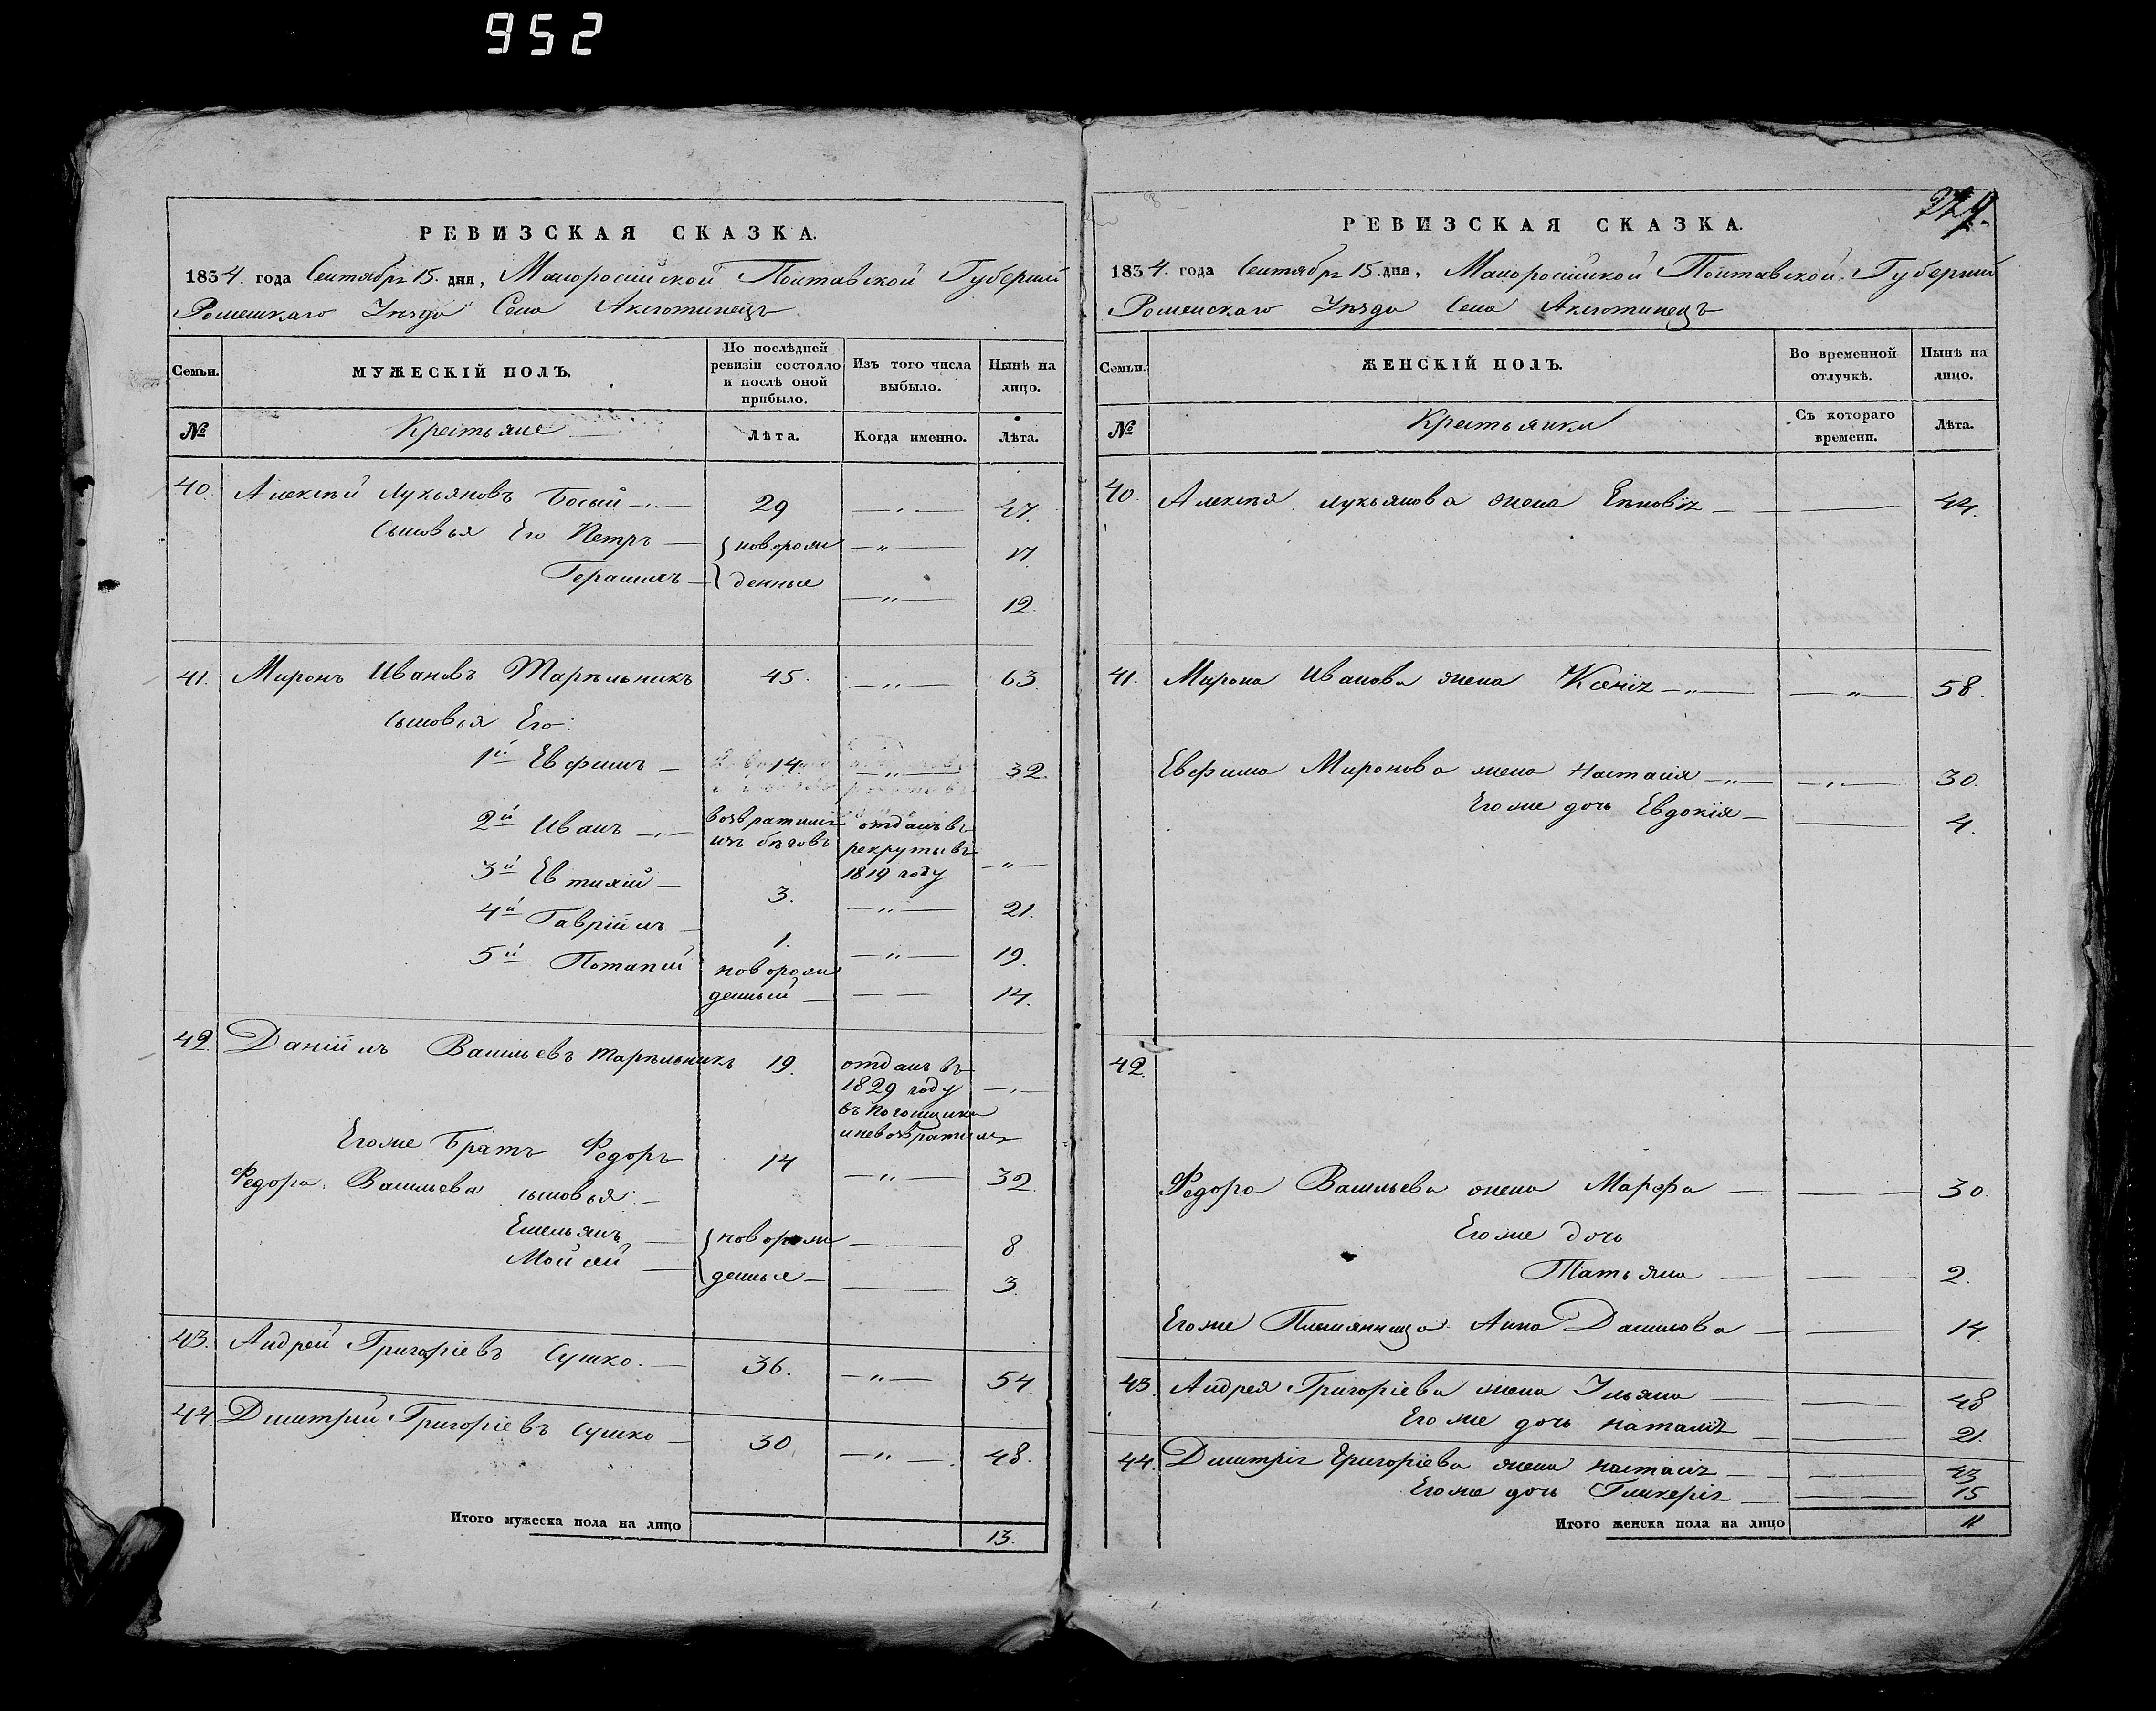 952
РЕВИЗСКАЯ СКАЗКА.
1834. года Сентября 15. дня, Малоросийской Полтавской Губернии
Роменскаго Уѣзда Села Аксютинецъ
Семьи.
МУЖЕСКІЙ ПОЛЪ.
По послѣдней ревизіи состояло и послѣ оной прибыло.
Изъ того числа выбыло.
Нынѣ на лицо.
№
Крестьяне
Лѣта.
Когда именно.
Лѣта.
40. Алексѣй Лукьяновъ Босый 29 — „ — 47.
Сыновья Его Петръ — новорож — „ — 17.
Герасимъ — денные — „ — 12.
41. Миронъ Ивановъ Тарѣльникъ 45. — „ — 63.
сыновья Его:
1й Евфимъ — 14. — „ — 32.
2й Иванъ — „ — возвратился изъ бѣговъ отданъ въ рекруты въ 1819 году — „ —
3й Евтихій — 3. — „ — 21.
4й Гавріилъ — 1. — „ — 19.
5й Потапій новорож денный — — — 14.
42. Даніилъ Васильевъ Тарѣльникъ 19. отданъ въ 1829 году въ погонщики и невозвратился — „ —
Егоже Братъ Федоръ 14 — „ — 32.
Федора Васильева сыновья: —
Емельянъ — новорож — — 8.
Мойсей — денные — — 3.
43. Андрей Григоріевъ Сушко. — 36. — „ — 54.
44. Дмитрій Григоріевъ Сушко — 30 — „ — 48.
Итого мужеска пола на лицо 13.
РЕВИЗСКАЯ СКАЗКА.
1834. года Сентября 15. дня, Малоросійской Полтавской Губернии
Роменскаго Уѣзда Села Аксютинецъ
Семьи.
ЖЕНСКІЙ ПОЛЪ.
Во временной отлучкѣ.
Нынѣ на лицо.
№
Крестьянки
Съ котораго времени.
Лѣта.
40. Алексѣя Лукьянова жена — — 44.
41. Мирона Иванова жена Ксенія — „ — — „ — 58.
Евфима Миронова жена Настасія — „ — — „ — 30.
Егоже дочь Евдокія — — 4.
42.
Федора Васильева жена Марфа — — — 30.
Егоже дочь
Татьяна — — — 2.
Егоже Племянница Анна Данилова — — 14.
43. Андрея Григоріева жена Ульяна — — 48
Егоже дочь Наталія — — 21.
44. Дмитрія Григоріева жена Настасія — — 43
Егоже дочь Гликерія — — 15
Итого женска пола на лицо 11